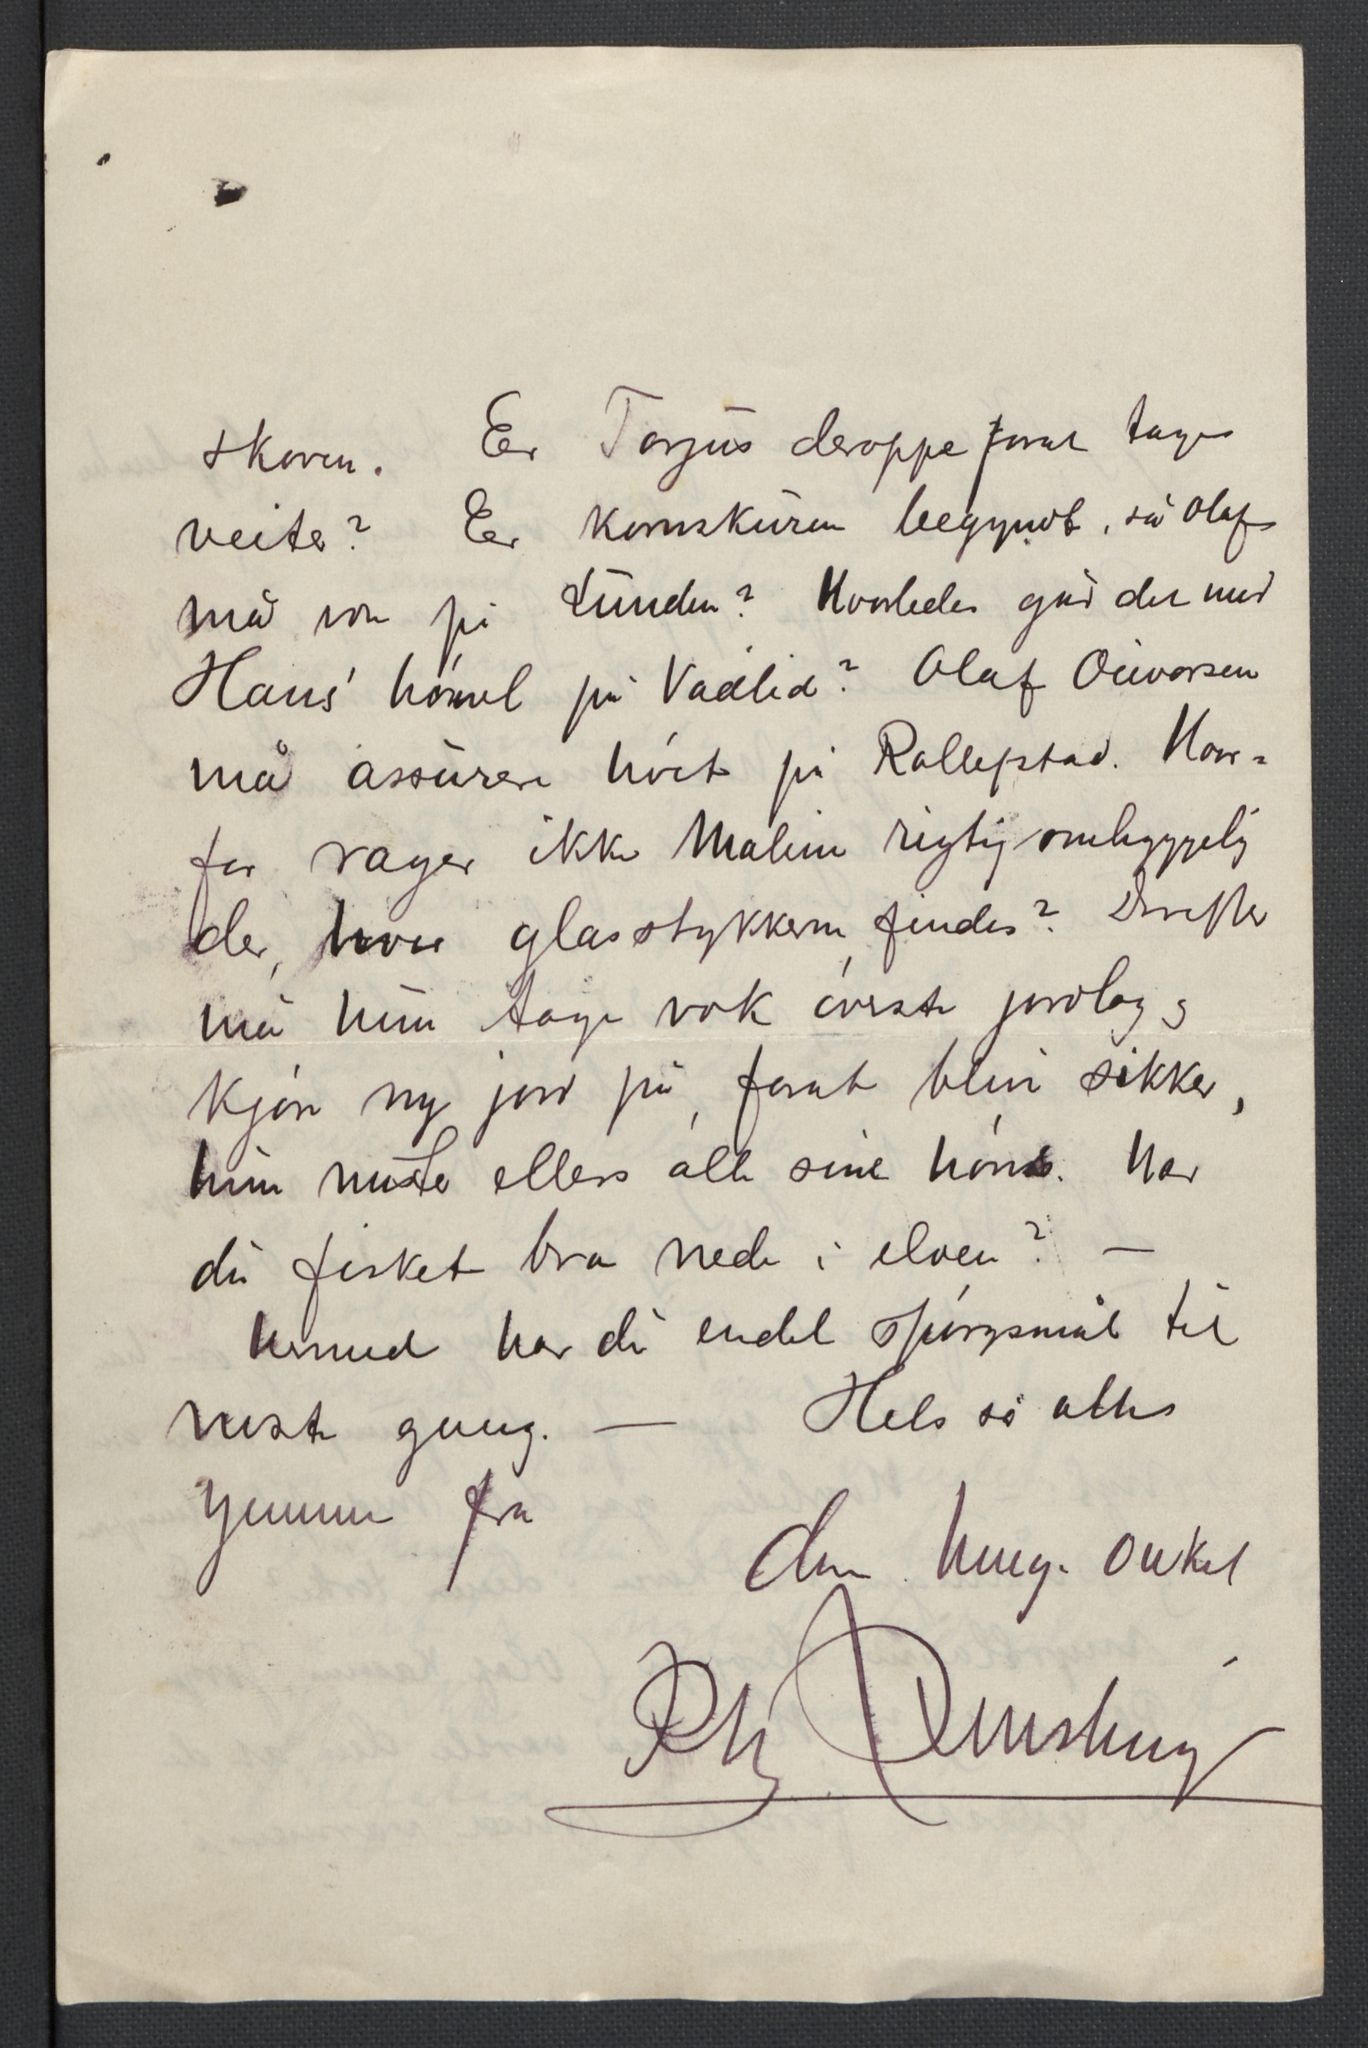 skoven. Er Torjus deroppe forat tage
veiter? Er kornskuren begyndt, så Olafs
må von på Lunden? Hvorledes går det med
Hans' hövel på Vadlid? Olaf Oiivorsen
må assurere höiet på Rollefstad. Hvor-
for rager ikke Maline rigtig omhyggelig
der, hvor glasstykkerne findes? Derefter
må hun tage væk överste jordlag &
kjöre ny jord på, forat blive sikker,
hun mister ellers alle sine höns. Har
du fisket bra nede i elven? —
Hermed har du endel spörgsmål til
næste gang. — Hels så alle
hjemme fra
din heng. Onkel